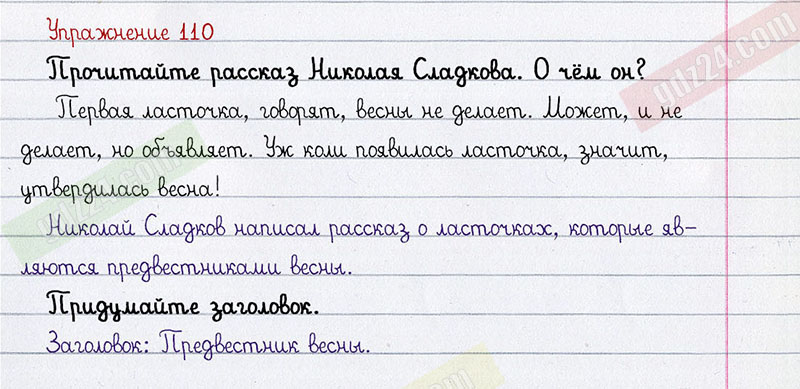 Упражнение 110
Прочитайте рассказ Николая Сладкова. О чём он?
Первая ласточка, говорят, весны не делает. Может, и не
делает, но объявляет. Уж коли появилась ласточка, значит,
утвердилась весна!
Николай Сладков написал рассказ о ласточках, которые яв-
ляются предвестниками весны.
Придумайте заголовок.
Заголовок: Предвестник весны.
gdz24.com
gdz24.com
gdz24.com